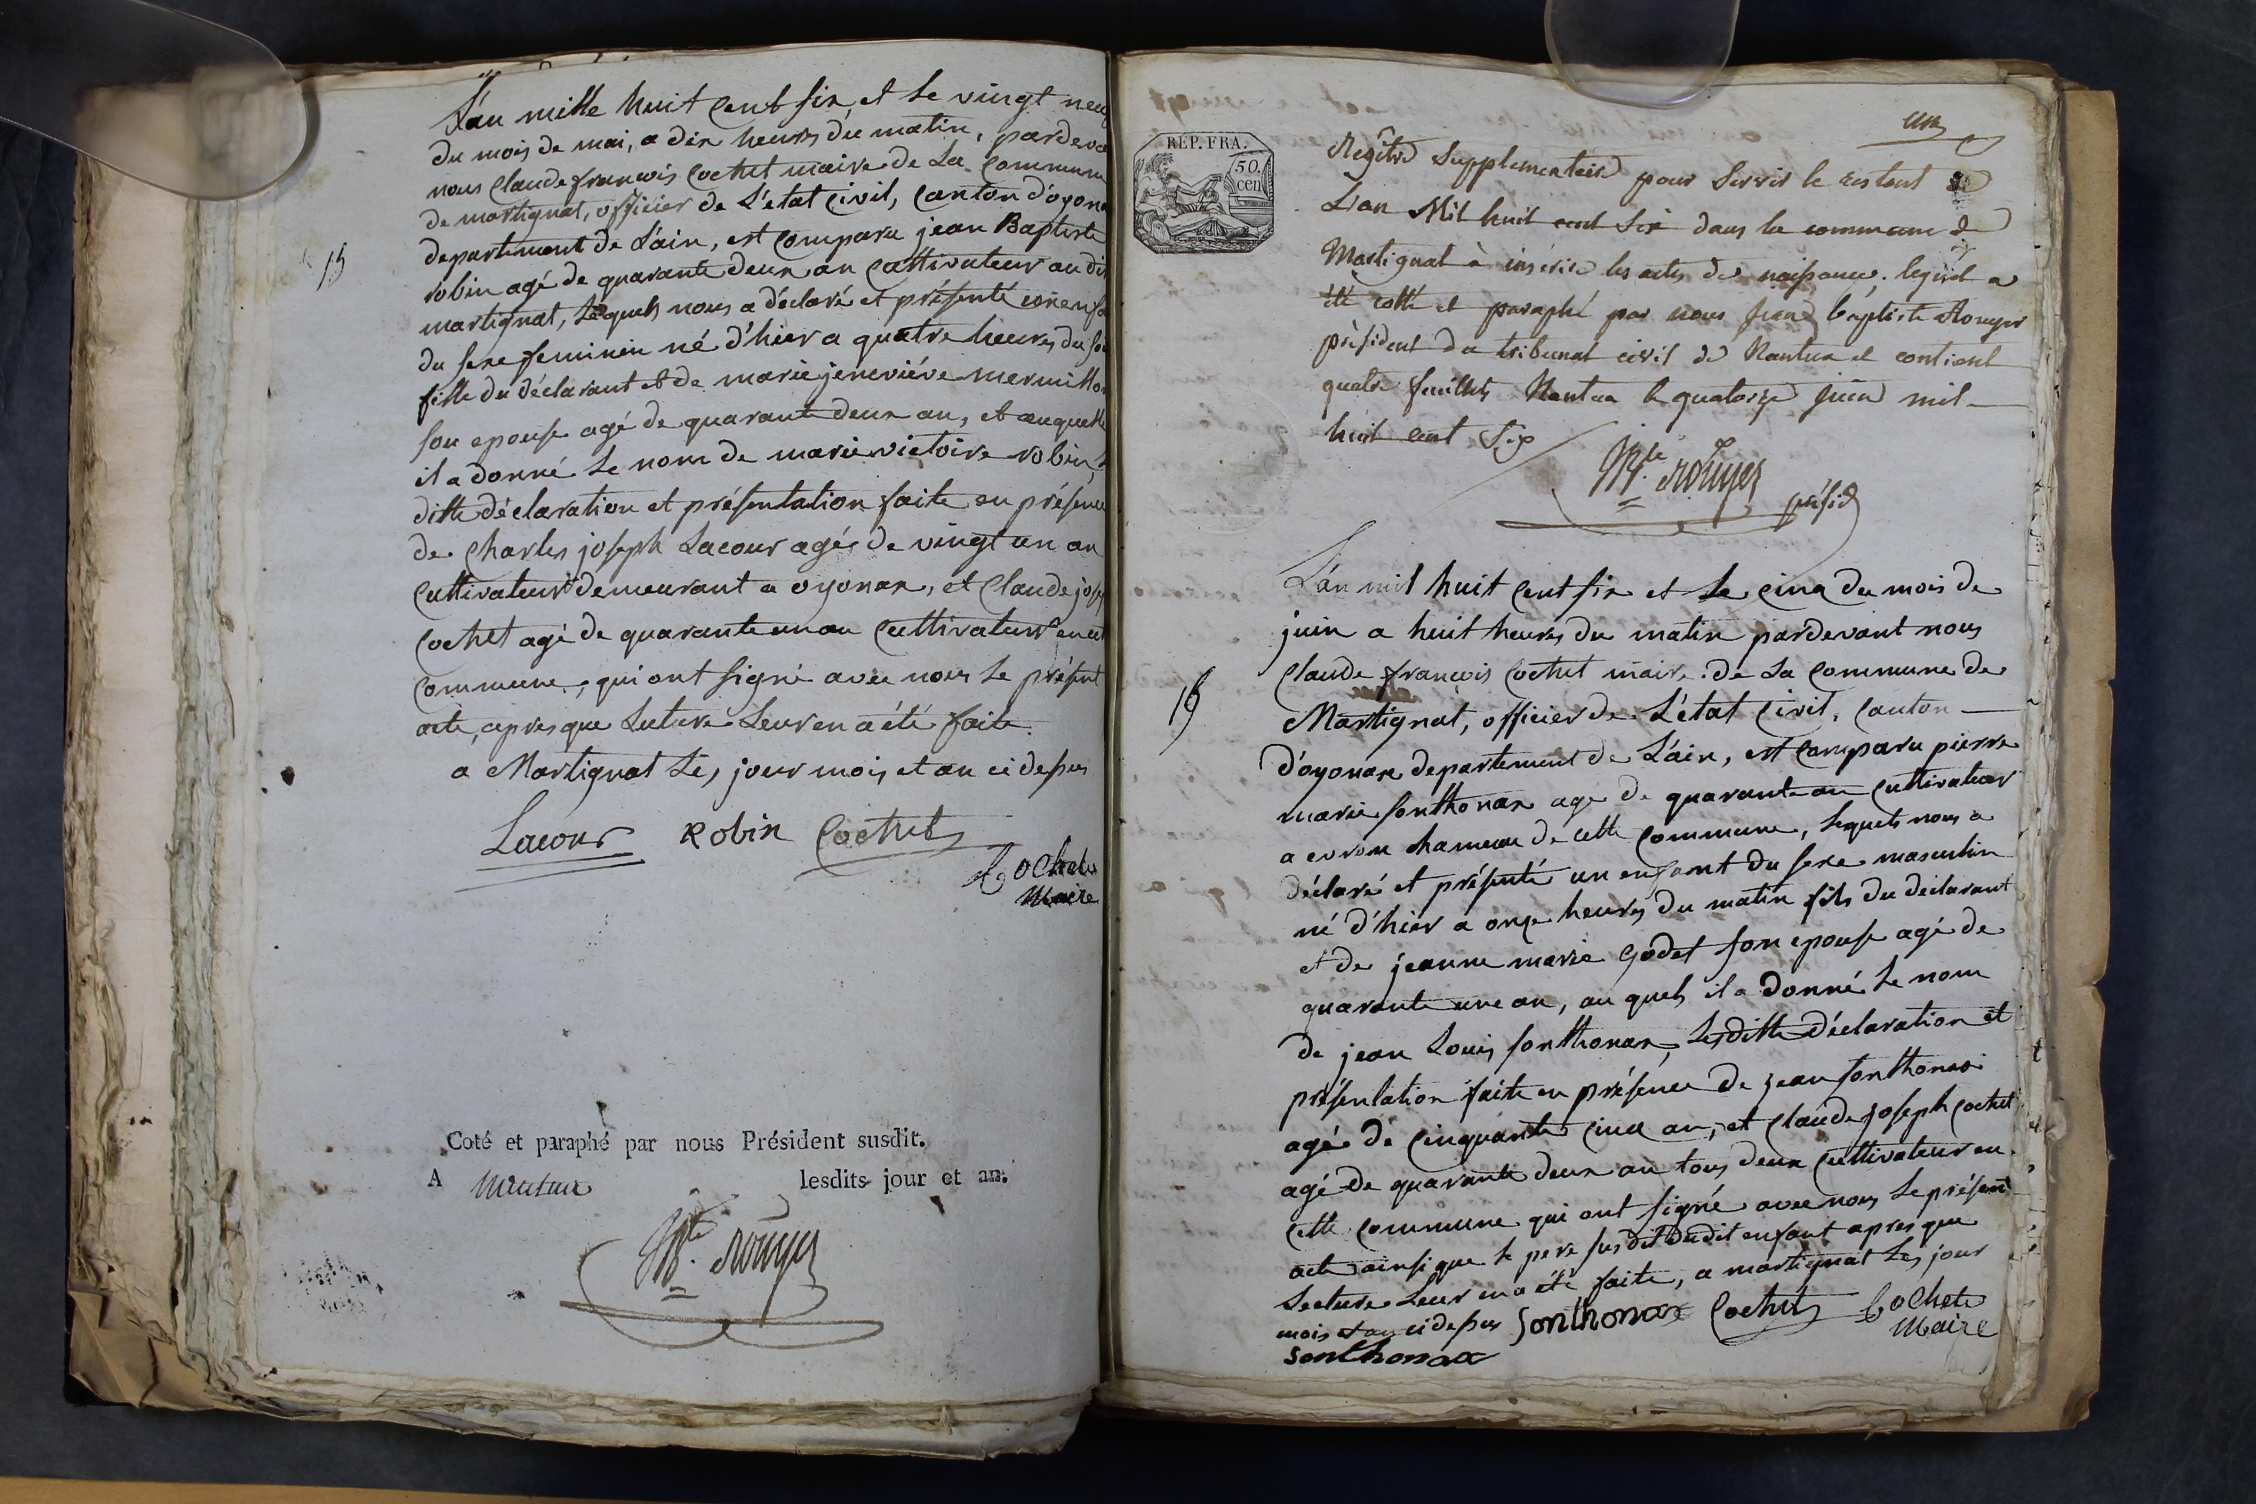 L'an mille huit cent six et le vingt neuf
du mois de mai, a dix heures du matin, pardeva
nous Claude françois Cochet maire de La Commune
de martignat, officier de L'etat Civil, Canton d'oyona
departement de L'ain, est Comparu jean Baptiste
15
robin agé de quarante deux an Cultivateur au dit
martignat, Lequels nous a déclaré et présenté
du sexe feminin né d'hier a quatre heures du soi
fille du déclarant et de marie jeneviéve mermillon
son epouse agé de quarante deux an, et auquelle
il a donné Le nom de marie victoire robin,
ditte déclaration et présentation faite en présence
de Charles joseph Lacour agés de vingt un an
Cultivateur demeurant a oyonax, et Claude jose
Cochet agé de quarante un an Cultivateur en cet
Commune, qui ont signé avec nous Le présent
acte, apres que Luture Leur en a été faite.
a Martignat Les jour mois et an ci dessus
Lacour Robin Cochet
Cochet
Maire
Coté et paraphé par nous Président susdit.
A Nantua lesdits jour et an.
Bte. Rouyer
un
REP. FRA.
50.
cen
Regître Supplementaire pour Servir le restant de
L'an Mil huit cent Six dans la commune de
Martignat à inscrire les actes de naissance, lequel a
été cotté et paraphé par nous Jean baptiste Rouyer
président du tribunal civil de Nantua et contient
quatre feuillets Nantua le quatorze juin mil
huit cent Six
Bte. Rouyer
présid
L'an mil huit cent six et Le cinq du mois de
juin a huit heures du matin pardevant nous
Claude françois Cochet maire de La Commune de
16
Martignat, officier de L'état Civil, Canton
d'oyonax departement de L'ain, est Comparu pierre
marie sonthonax age de quarante an Cultivateur
a evron hameau de cette Commune, Lequels nous a
déclaré et présenté un enfant du sexe masculin
né d'hier a onze heures du matin fils du déclarant
et de jeanne marie Godet son epouse agé de
quarante une an, au quels il a donné Le nom
de jean Louis sonthonax, Lesditte déclaration et
présentation faite en présence de jean sonthonax
agé de Cinquante Cinq an, et Claude joseph Cochet
agé de quarante deux an tous deux Cultivateur en
Cette Commune qui ont signé avec nous Le présent
acte ainsi que Le pere susdit dudit enfant apres que
Lecture Leur en a été faite, a martignat Les jour
mois et an ci dessus Sonthonax Cochet Cochet
Maire
Sonthonax